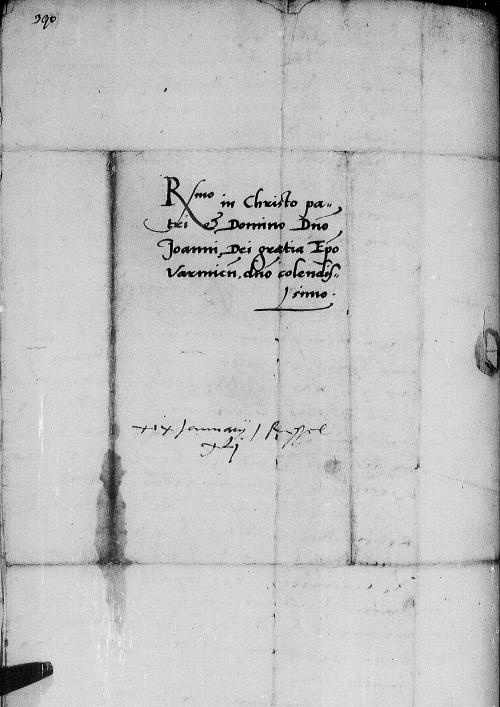 390
R^mo in Christo pa-
tri & Domino Dno
Joanni, Dei gratia Epo
Varmien, dno colendis-
simo.
xix Januarij /
xlj